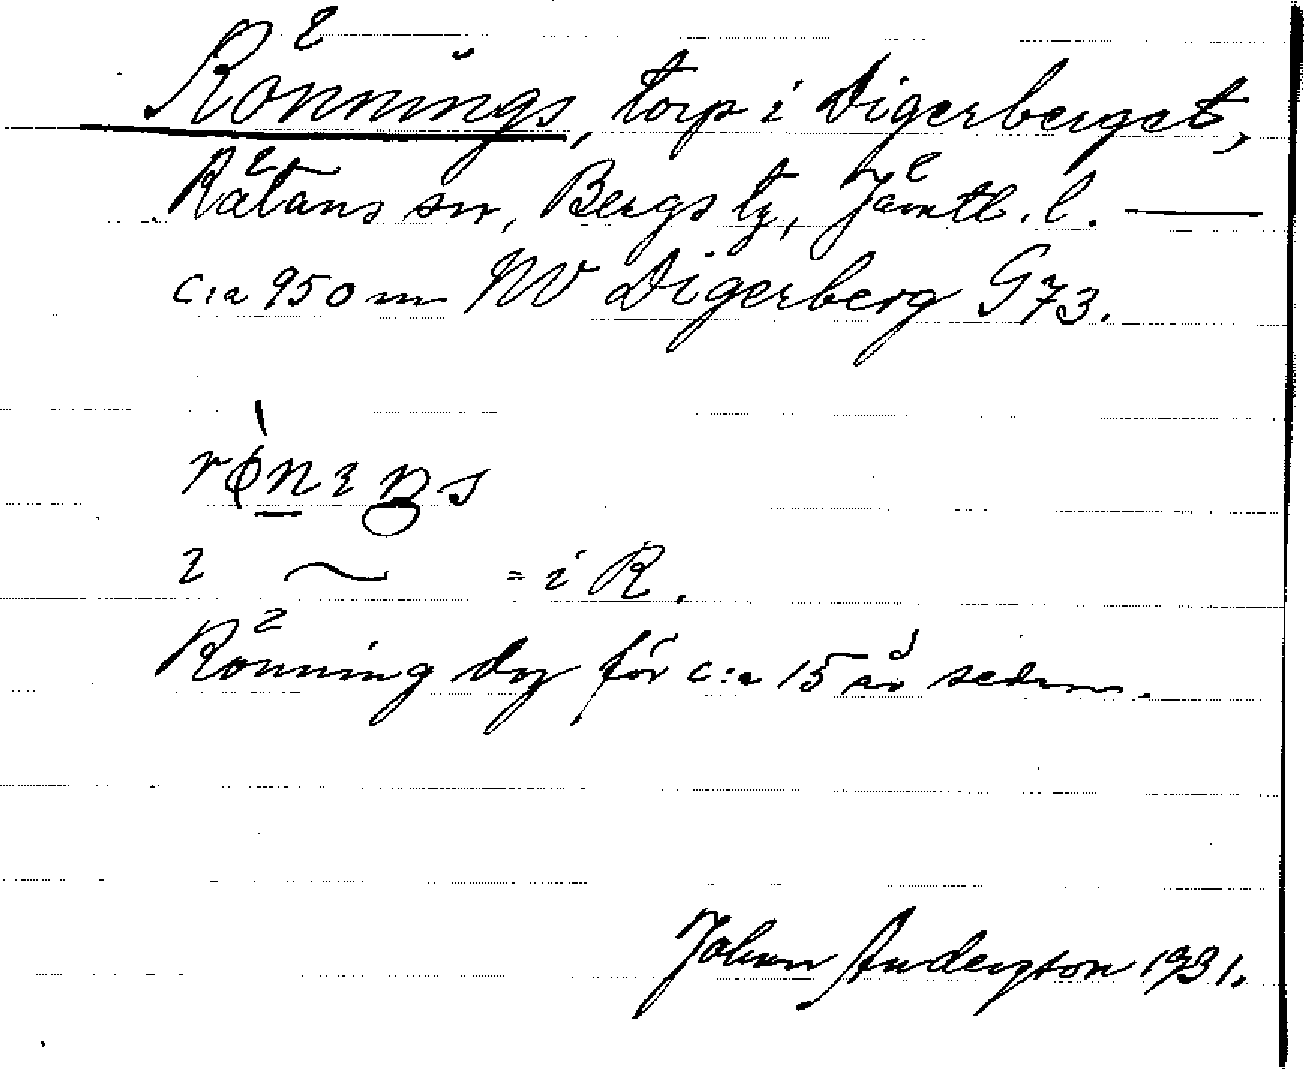 Rönnings, torp i Digerberget,
Rätans sn, Bergs tg, Jämtl. l. —
c:a 950 m NV Digerberg G73.
i ~ = i R.
Rönning dog för c:a 15 år sedan.
Johan Anderson 1931.